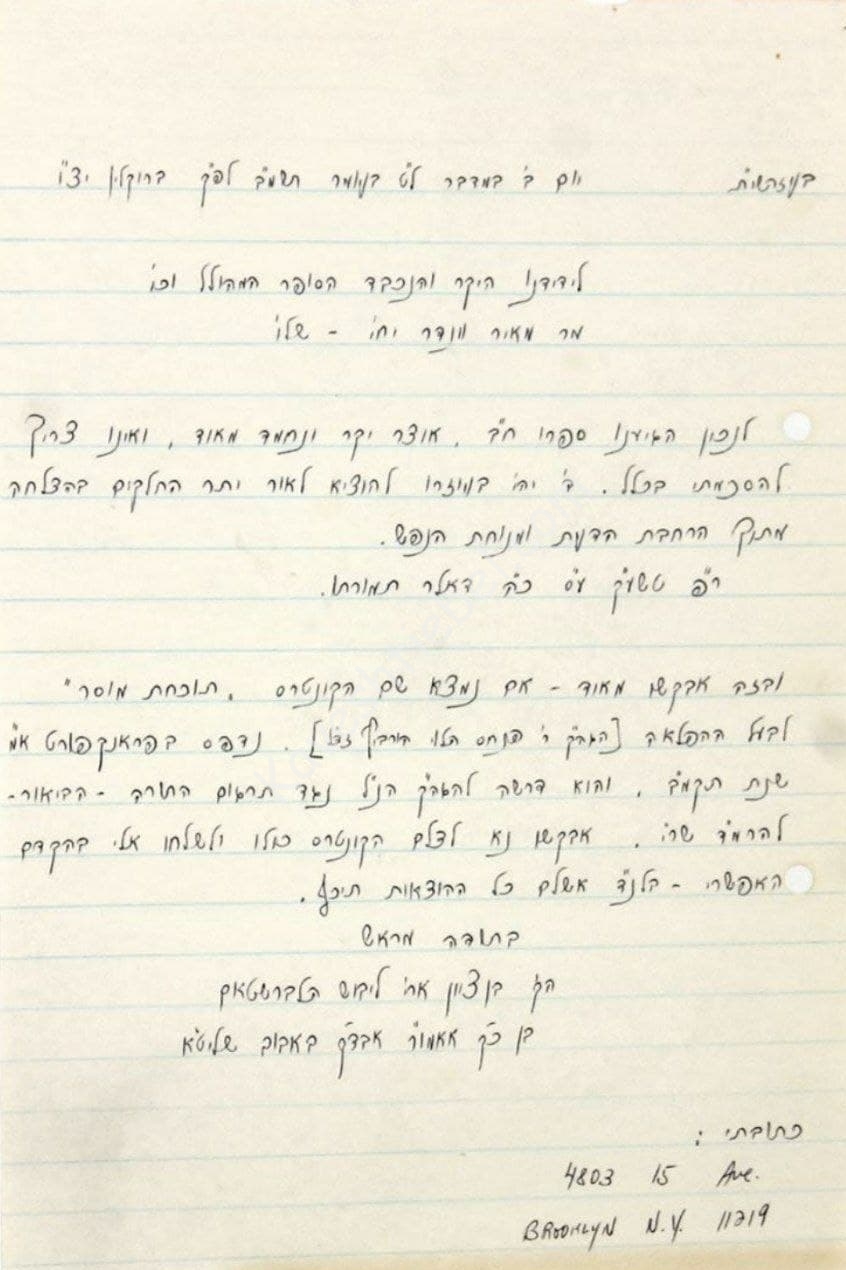 בעזהשי״ת יום ב׳ במדבר ל״ט בעומר תשמ״ב לפ״ק ברוקלין יצ״ו
לידידנו היקר והנכבד הסופר המהולל וכו׳
מר מאיר וונדר יחי׳ - שלו׳
לנכון הגיענו ספרו ח״ב, אוצר יקר ונחמד מאוד, ואינו צריך
להסכמתי בכלל. ה׳ יהי׳ בעוזרו להוציא לאור יתר החלקים בהצלחה
מתוך הרחבת הדעת ומנוחת הנפש.
רפ טשעק ע״ס כ״ה דאלר תמורתו.
ובזה אבקשו מאוד - אם נמצא שם הקונטרס „תוכחת מוסר״
לבעל ההפלאה [הגה״ק ר׳ פנחס הלוי הורביץ זצ״ל]. נדפס בפראנקפורט א״מ
שנת תקמ״ב, והוא דרשה להגה״ק הנ״ל נגד תרגום התורה - הביאור -
להרמ״ד שר״י. אבקשו נא לצלם הקונטרס כולו ולשלחו אלי בהקדם
האפשרי - בלנ״ד אשלם כל ההוצאות תיכף.
בתודה מראש
הק׳ בן ציון ארי׳ ליבוש הלברשטאם
בן כ״ק אאמו״ר אבדק״ק באבוב שליט״א
כתובתי:
4803 15 Ave.
BROOKLYN N.Y. 11219